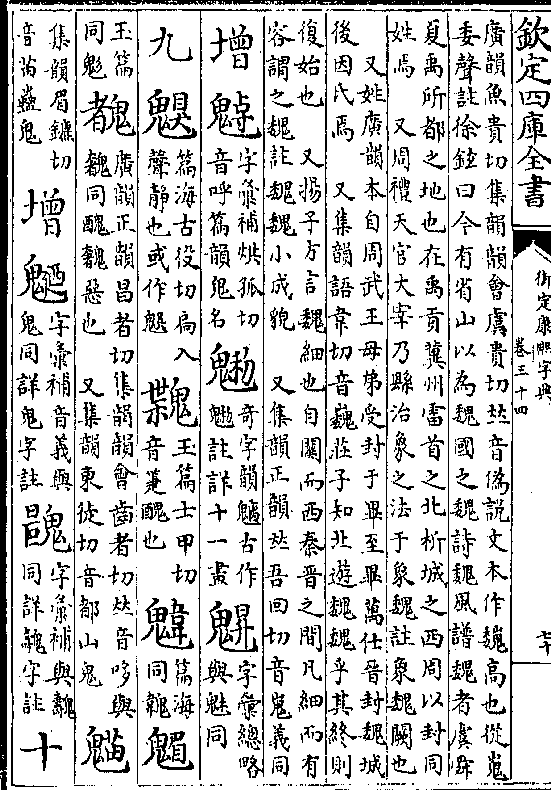 欽定四庫全書
御定康熙字典
卷三十四
七十
廣韻魚貴切集韻韻會虞貴切𠀤音僞說文本作巍高也從嵬
委聲註徐鉉曰今有省山以為魏國之魏詩魏風譜魏者虞舜
夏禹所都之地也在禹貢冀州雷首之北析城之西周以封同
姓焉 又周禮天官大宰乃縣治象之法于象魏註象魏闕也
又姓廣韻本自周武王母弟受封于畢至畢萬仕晉封魏城
後因氏焉 又集韻語韋切音巍莊子知北遊魏魏乎其終則
復始也 又揚子方言魏細也自關而西秦晉之間凡細而有
容謂之魏註魏魏小成貌 又集韻正韻𠀤吾回切音嵬義同
增 字彙補烘孤切
音呼篇韻鬼名
奇字韻 古作
註詳十一畫
字彙總略
與魅同
九 篇海古役切扃入
聲靜也或作
玉篇士甲切
音箑醜也
篇海
同
玉篇
同魑
廣韻正韻昌者切集韻韻會齒者切𠀤音哆與
同醜 惡也 又集韻東徒切音都山鬼
集韻眉鑣切
音苗 鬼
增 字彙補音義與
鬼同詳鬼字註
字彙補與
同詳 字註
十